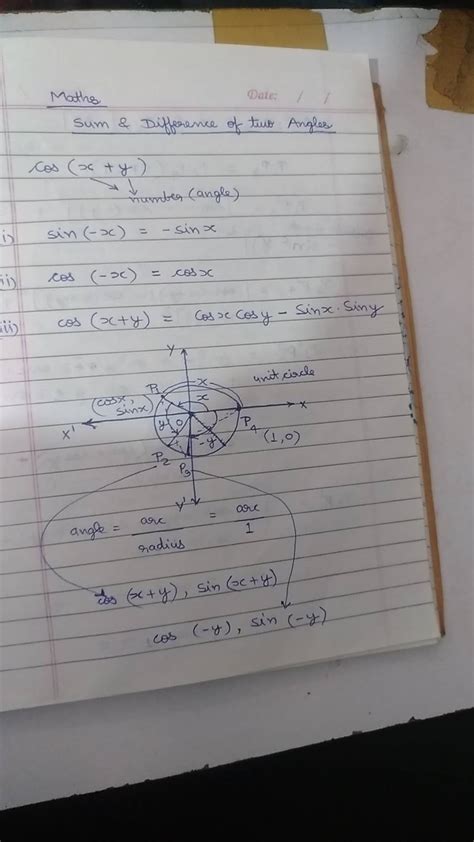 Maths Date: / /
Sum & Difference of two Angles
cos (x + y)
number (angle)
i) sin (-x) = - sin x
ii) cos (-x) = cos x
iii) cos (x+y) = Cosx Cosy - Sinx . Siny
Y
P1 X unit circle
(cosx, sinx) x
X' y 0 X
-y P4 (1,0)
P2 P3
Y'
angle = arc / radius = arc / 1
cos (x+y), sin (x+y)
cos (-y), sin (-y)